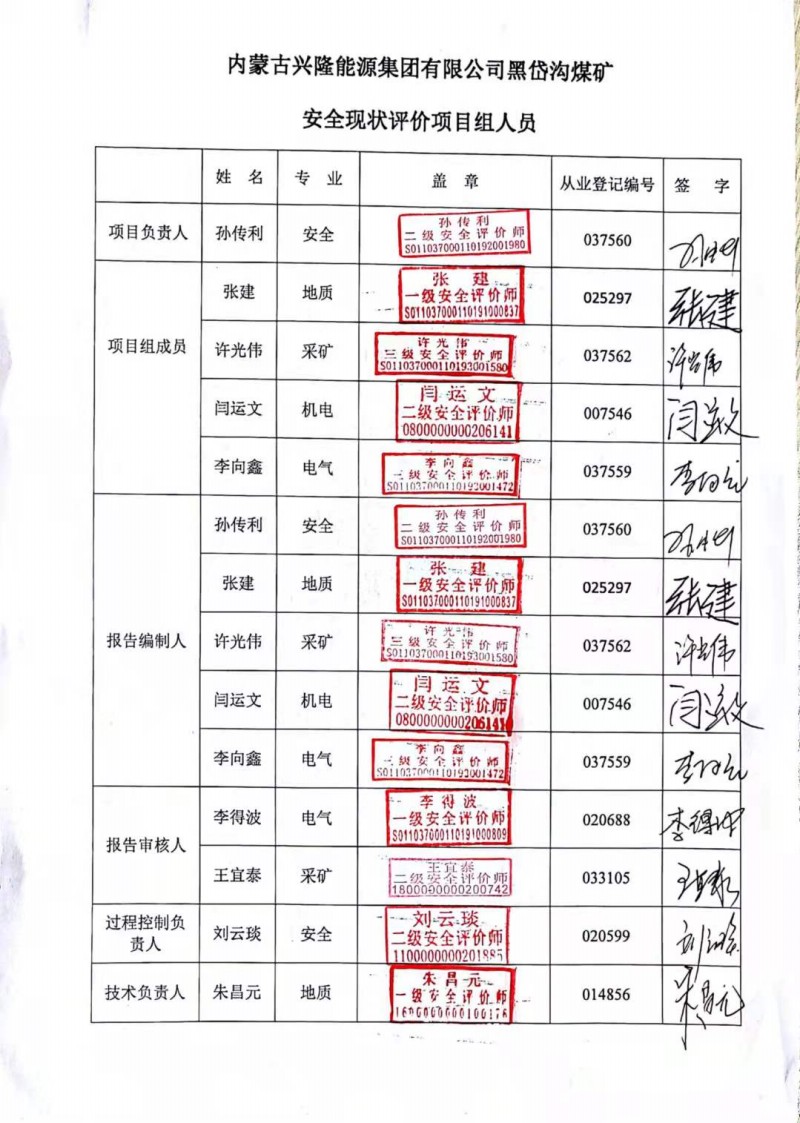 内蒙古兴隆能源集团有限公司黑岱沟煤矿
安全现状评价项目组人员
姓 名 专 业 盖 章 从业登记编号 签 字
项目负责人 孙传利 安全 037560
孙传利
二级安全评价师
S011037000110192001980
项目组成员
张建 地质 025297 张建
张 建
一级安全评价师
S011037000110191000837
许光伟 采矿 037562 许光伟
许光伟
三级安全评价师
S011037000110193001580
闫运文 机电 007546
闫运文
二级安全评价师
0800000000206141
李向鑫 电气 037559
李向鑫
三级安全评价师
S011037000110193001472
报告编制人
孙传利 安全 037560
孙传利
二级安全评价师
S011037000110192001980
张建 地质 025297 张建
张 建
一级安全评价师
S011037000110191000837
许光伟 采矿 037562 许光伟
许光伟
三级安全评价师
S011037000110193001580
闫运文 机电 007546
闫运文
二级安全评价师
0800000000206141
李向鑫 电气 037559
李向鑫
三级安全评价师
S011037000110193001472
报告审核人
李得波 电气 020688
李得波
一级安全评价师
S011037000110191000809
王宜泰 采矿 033105
王宜泰
二级安全评价师
1800000000200742
过程控制负
责人
刘云琰 安全 020599
刘云琰
二级安全评价师
1100000000201885
技术负责人 朱昌元 地质 014856 朱昌元
朱昌元
一级安全评价师
1600000000100176